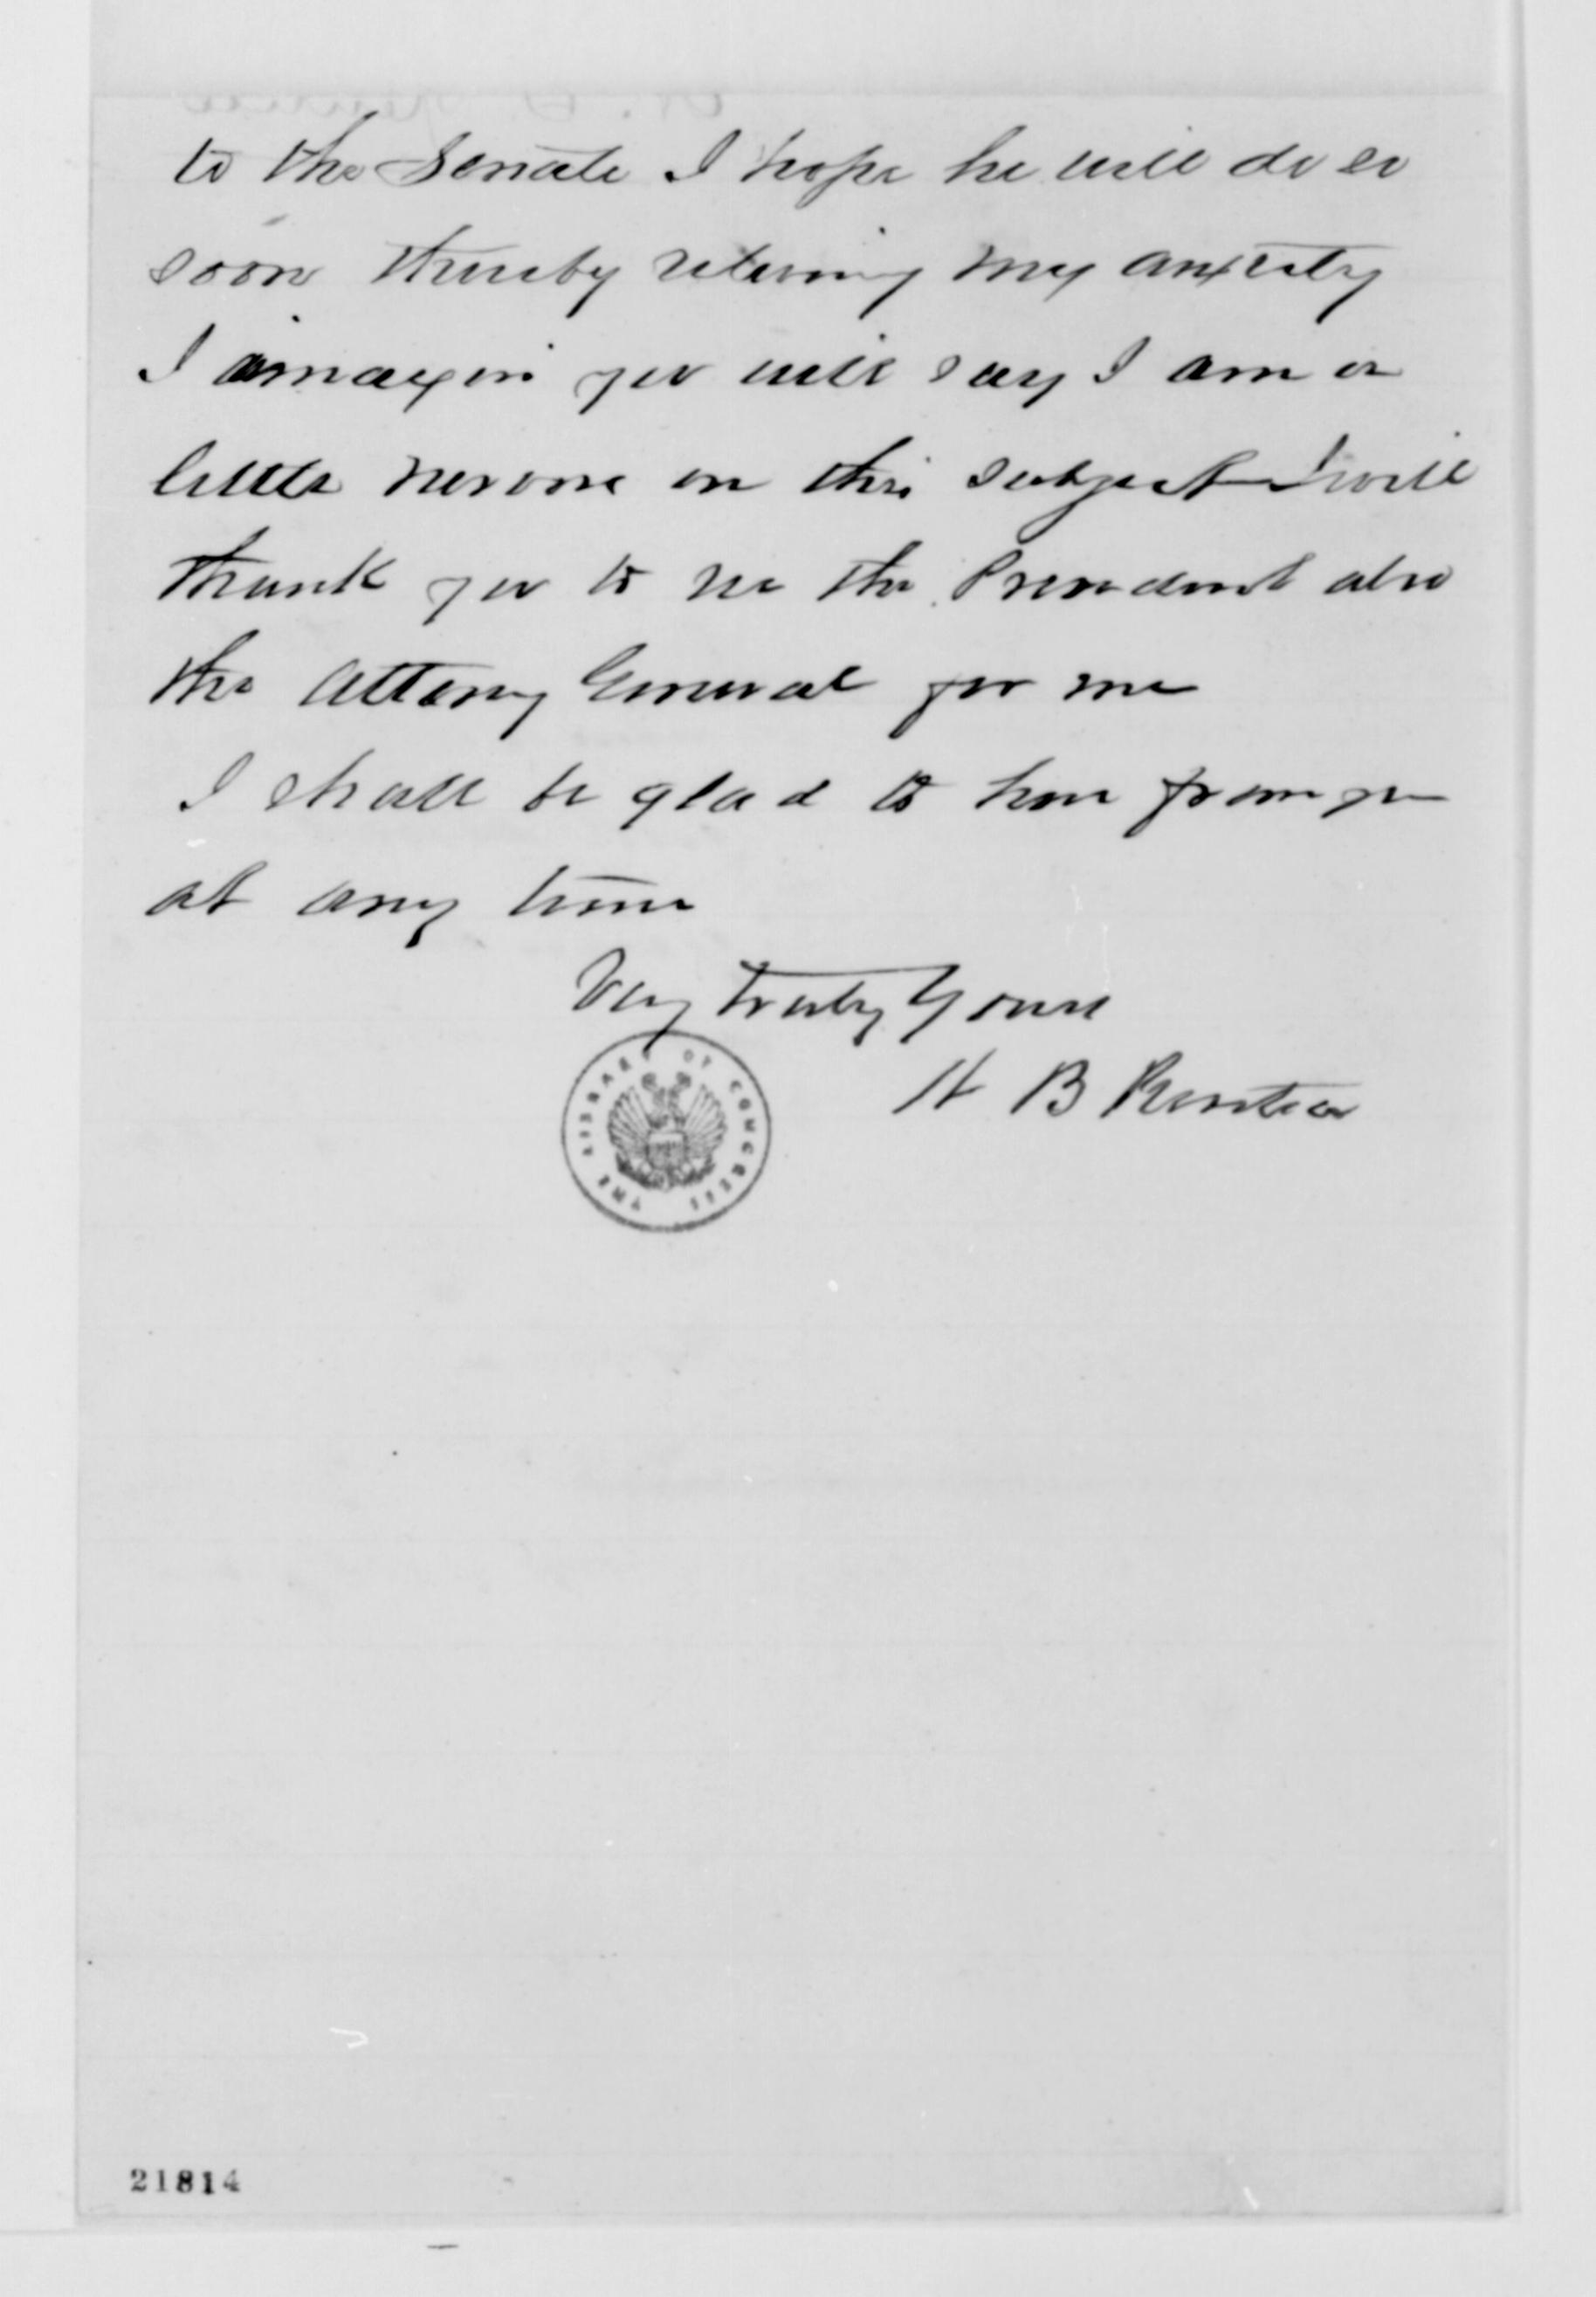 to the Senate I hope he will do so
soon thereby releiving my anxiety
I imagin you will say I am a
little nervous on this subject I will
thank you to see the President also
the Attorny General for me
I shall be glad to hear from you
at any time
Very truly Yours
H B
THE LIBRARY OF CONGRESS
21814